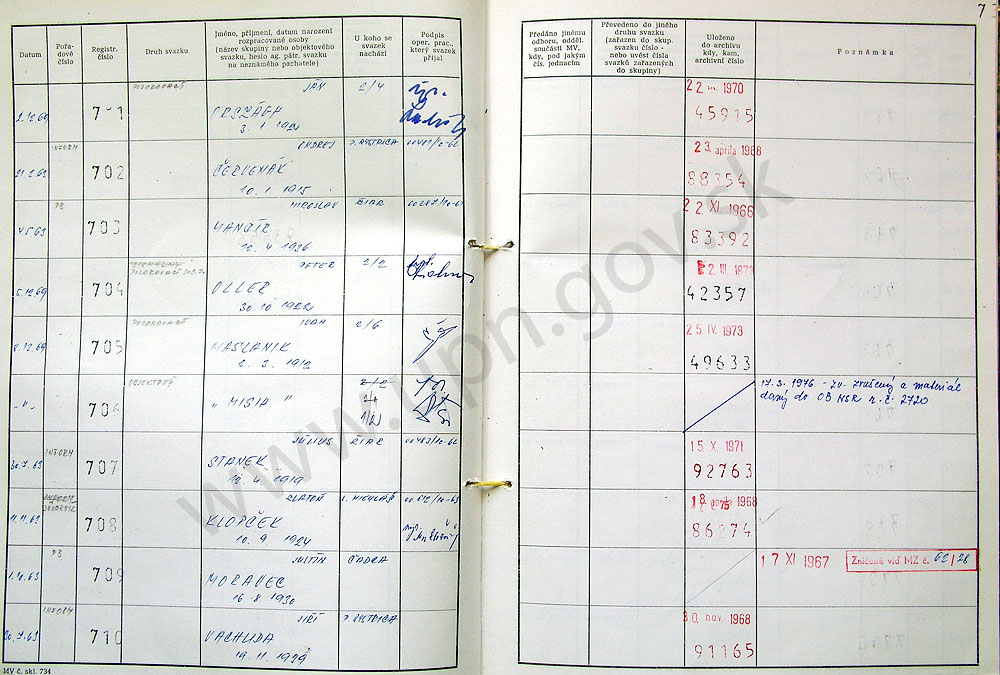 7
Datum
Pořa-
dové
číslo
Registr.
číslo
Druh svazku
Jméno, příjmení, datum narození
rozpracované osoby
(název skupiny nebo objektového
svazku, heslo ag. pátr. svazku
na neznámého pachatele)
U koho se
svazek
nachází
Podpis
oper. prac.,
který svazek
přijal
Předáno jinému
odboru, odděl.
součásti MV,
kdy, pod jakým
čís. jednacím
Převedeno do jiného
druhu svazku
(zařazen do skup.
svazku číslo -
nebo uvést čísla
svazků zařazených
do skupiny)
Uloženo
do archivu
kdy, kam,
archivní číslo
Poznámka
2.12.69 701 POZOROVACÍ JÁN 2/4
ORSZÁGH
3. 1 1921
22 III. 1970
45915
21.2.63 INFORM 702 ONDREJ B. BYSTRICA
ČERVENÁK
10. 1 1915
23. aprila 1968
88354
4.5.63 PB 703 MIROSLAV ŽIAR
10. 4 1936
22 XI 1966
83392
5.12.69 704 POZOROVACÍ PETER 2/2
OLLER
30. 10 1922
2. III. 1973
42357
8.12.69 705 POZOROVACÍ IVAN 2/6
MASLANIK
2. 3. 1912
25. IV. 1973
49633
-"- 706 OBJEKTOVÝ 2/2
„MISIA"
1/2
17. 3. 1976 - zv. zrušený a materiál
daný do OB NSR r. č. 2720
30.7.63 INFORM 707 JÚLIUS ŽIAR
STANEK
12. 4 1919
15. X. 1971
92763
11.11.63 708 ZLATOŇ L. MIKULÁŠ
KLOPČEK
10. 9 1924
18. aprila 1968
86274
1.10.63 PB 709 JUSTÍN ČADCA
MORAVEC
16. 8 1930
17 XI 1967 Zničené viď MZ č. 62/28
30.7.63 INFORM 710 JIŘÍ B. BYSTRICA
VACHUDA
19. 11 1939
30. nov. 1968
91165
MV č. skl. 734
www.upn.gov.sk